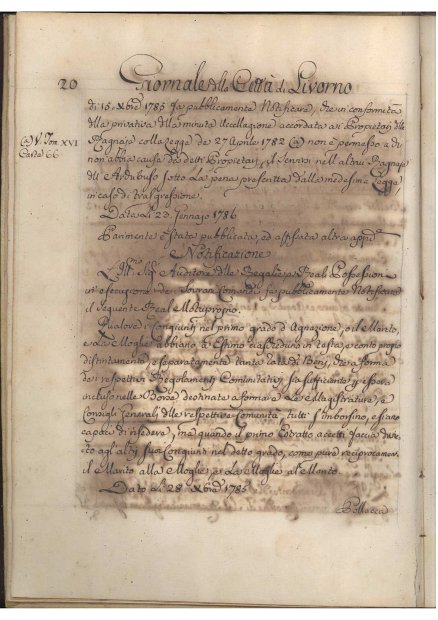 20 Giornale della Città di Livorno
di 15. Xbre 1785 fa pubblicamente Notificare, che in conformità
della privativa della minuta Uccellagione accordata ai Proprietarj delle
@ V. Tom. XVI
Carte 66
Ragnaje colla Legge de 27 Aprile 1782 @ non è permesso a chi
non abbia causa da detti Proprietarj, il tenersi nell'altrui Ragnaje
di Archibuso sotto la pena prescritta dalla medesima Legge,
in caso di trasgressione.
Data li 23. Jennajo 1786
Parimente è stata pubblicata, ed affissata altra
Notificazione
L' Sig. Auditore delle Regalie, e Reali Possessioni
in esecuzione de Sovrani Comandi fa pubblicamente Notificare
il seguente Real Motuproprio.
Qualora i Congiunti nel primo grado d'Agnazione, o il Marito,
e la Moglie abbiano a Estimo ciascheduno in testa, e conto proprio
distintamente, e separatamente tanta tassa di Beni, che a forma
dei respettivi Regolamenti Comunitativi sia sufficiente per esser
incluso nelle Borse destinate a formare le Magistrature, e
Consigli Jenerali delle respettive Comunità, tutti s'imborsino, e siano
capaci di risedere, ma quando il primo Estratto accetti faccia divieto
agl'altri suoi Congiunti nel detto grado, come pure reciprocamente
il Marito alla Moglie, e la Moglie al Marito.
Dato li 28. Xbre 1785